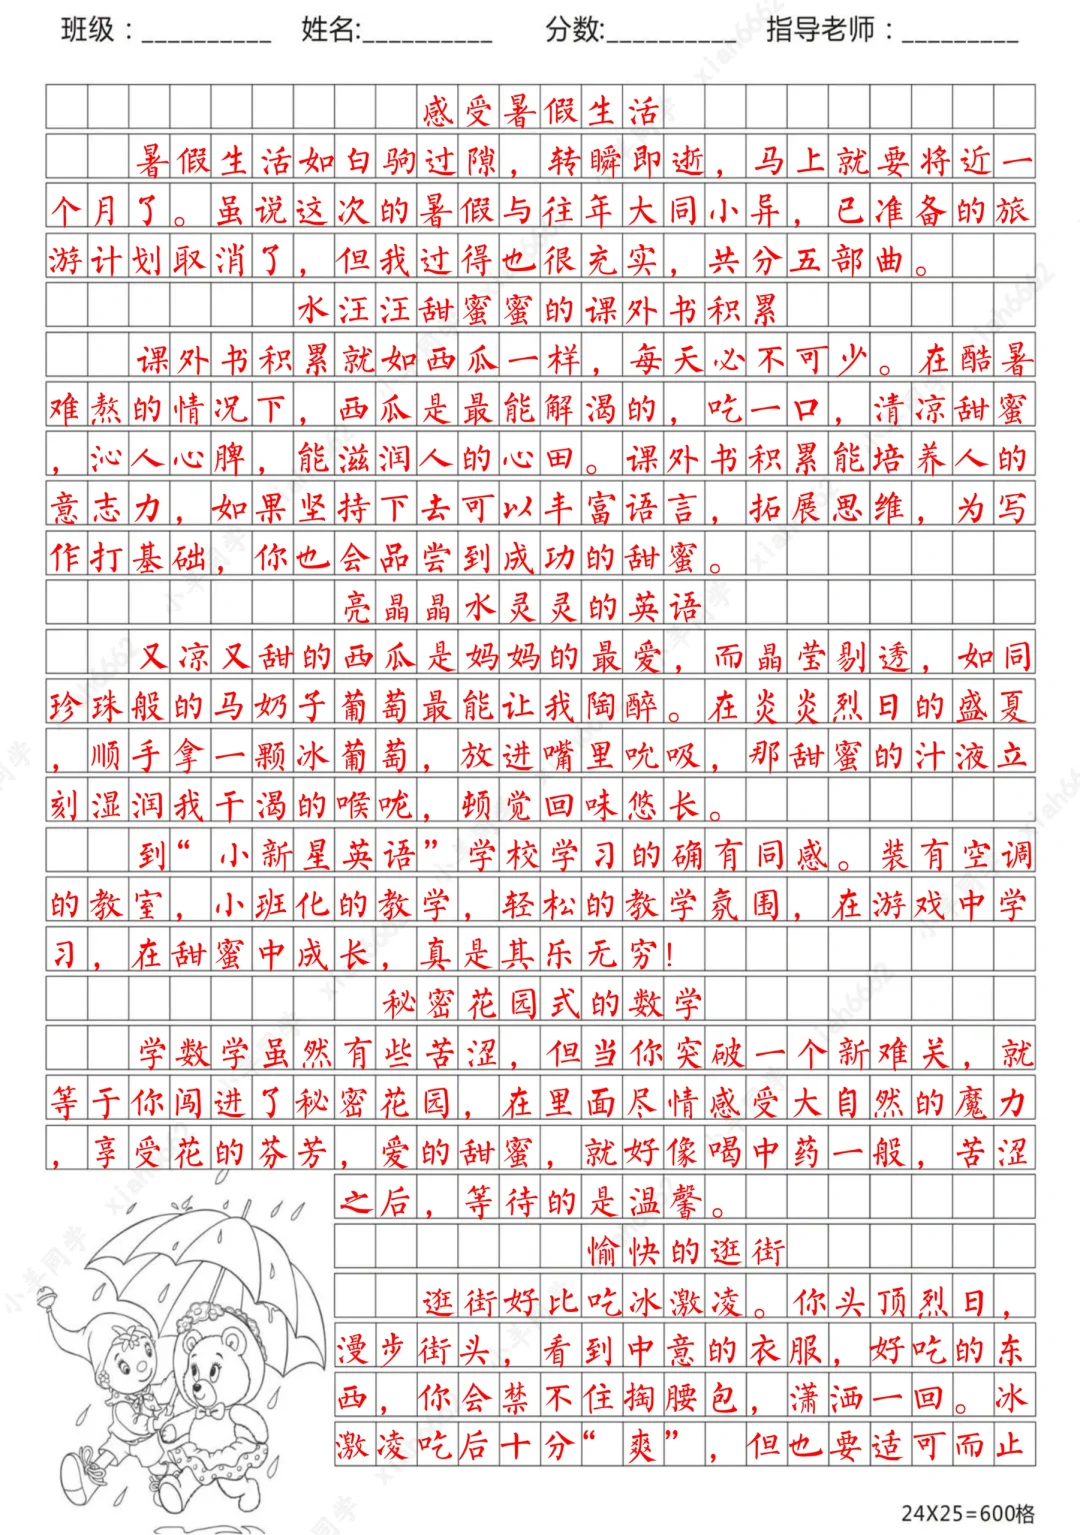 班级：__________ 姓名:__________ 分数:__________ 指导老师：_________
感受暑假生活
暑假生活如白驹过隙，转瞬即逝，马上就要将近一
个月了。虽说这次的暑假与往年大同小异，已准备的旅
游计划取消了，但我过得也很充实，共分五部曲。
水汪汪甜蜜蜜的课外书积累
课外书积累就如西瓜一样，每天必不可少。在酷暑
难熬的情况下，西瓜是最能解渴的，吃一口，清凉甜蜜
，沁人心脾，能滋润人的心田。课外书积累能培养人的
意志力，如果坚持下去可以丰富语言，拓展思维，为写
作打基础，你也会品尝到成功的甜蜜。
亮晶晶水灵灵的英语
又凉又甜的西瓜是妈妈的最爱，而晶莹剔透，如同
珍珠般的马奶子葡萄最能让我陶醉。在炎炎烈日的盛夏
，顺手拿一颗冰葡萄，放进嘴里吮吸，那甜蜜的汁液立
刻湿润我干渴的喉咙，顿觉回味悠长。
到“小新星英语”学校学习的确有同感。装有空调
的教室，小班化的教学，轻松的教学氛围，在游戏中学
习，在甜蜜中成长，真是其乐无穷！
秘密花园式的数学
学数学虽然有些苦涩，但当你突破一个新难关，就
等于你闯进了秘密花园，在里面尽情感受大自然的魔力
，享受花的芬芳，爱的甜蜜，就好像喝中药一般，苦涩
之后，等待的是温馨。
愉快的逛街
逛街好比吃冰激凌。你头顶烈日，
漫步街头，看到中意的衣服，好吃的东
西，你会禁不住掏腰包，潇洒一回。冰
激凌吃后十分“爽”，但也要适可而止
24X25=600格
小羊同学 xiah6662